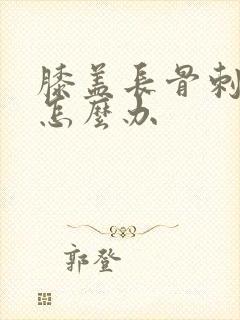 膝盖長骨刺
怎麼办
郭登